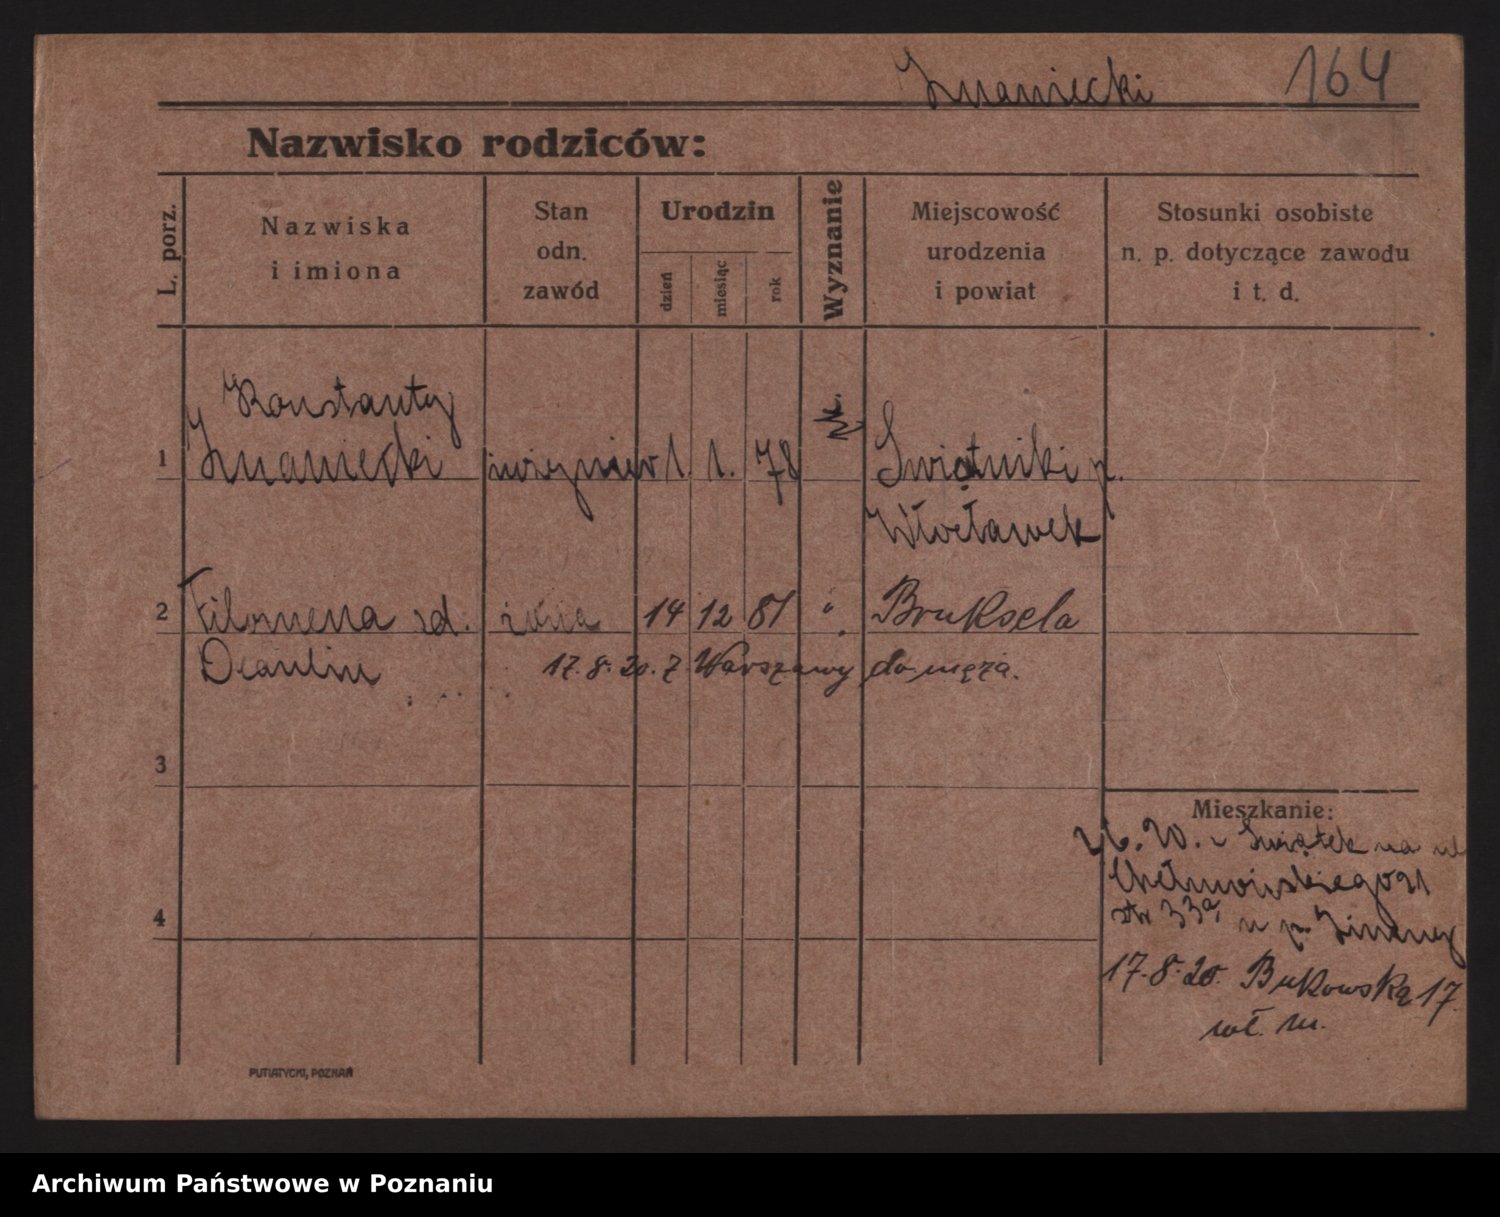 Znaniecki 164
Nazwisko rodziców:
L. porz.
Nazwiska
i imiona
Stan
odn.
zawód
Urodzin
dzień
miesiąc
rok
Wyznanie
Miejscowość
urodzenia
i powiat
Stosunki osobiste
n. p. dotyczące zawodu
i t. d.
Konstanty
1 Znaniecki inżynier 1. 1. 78 rk. Świątniki p.
Włocławek
2 Filomena zd. żona 14 12 81 " Bruksela
17. 8. 20. z Warszawy do męża.
3
Mieszkanie:
Świątek na ul
str 33a, u p.
4
17. 8. 20. Bukowska 17.
wł. m.
PUTIATYCKI, POZNAŃ
Archiwum Państwowe w Poznaniu